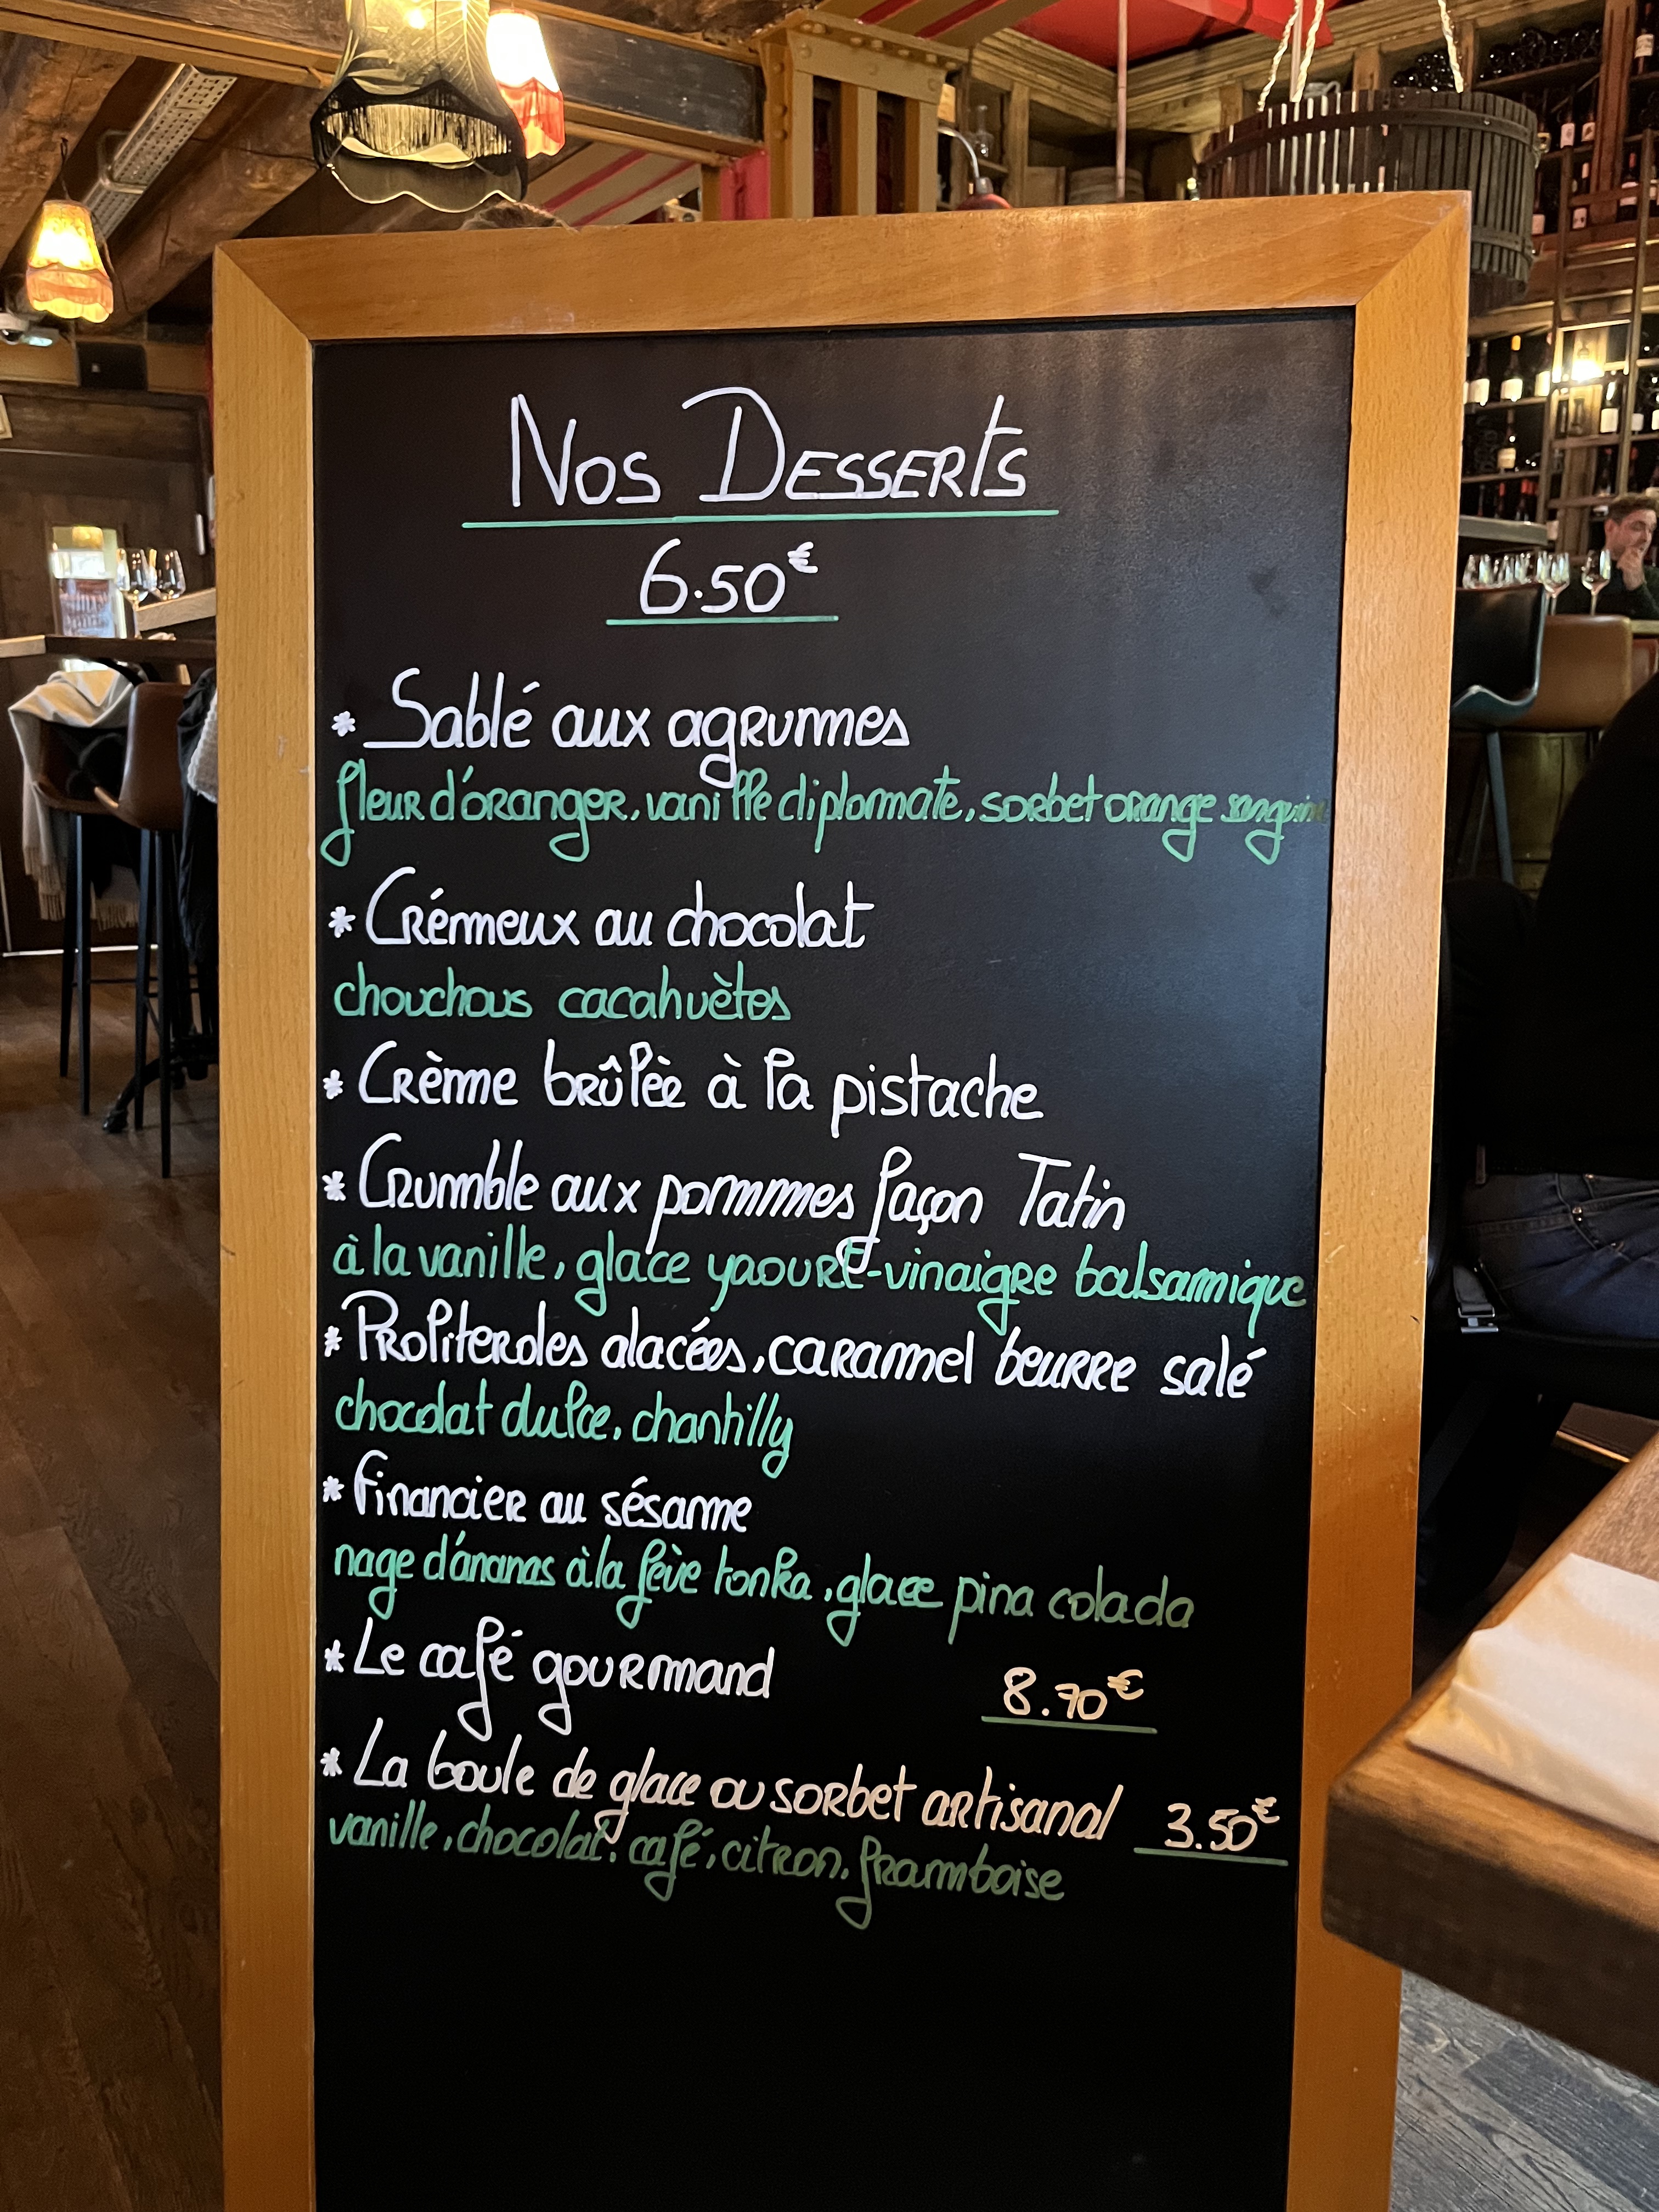 Nos Desserts
6.50€
* Sablé aux agrumes
fleur d'oranger, vanille diplomate, sorbet orange sanguine
* Crémeux au chocolat
chouchous cacahuètes
* Crème brûlèe à la pistache
* Crumble aux pommes façon Tatin
à la vanille, glace yaourt-vinaigre balsamique
* Profiteroles glacées, caramel beurre salé
chocolat dulce, chantilly
* Financier au sésame
nage d'ananas à la fève tonka, glace pina colada
* Le café gourmand 8.70€
* La boule de glace ou sorbet artisanal 3.50€
vanille, chocolat, café, citron, framboise